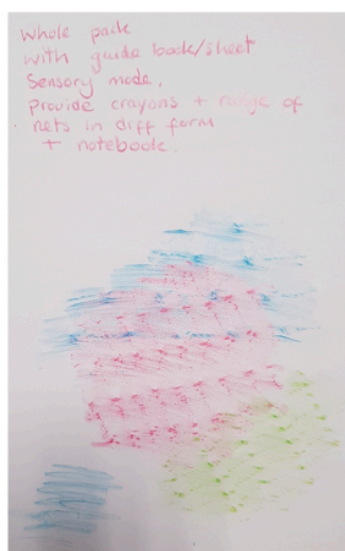 Whole pack
with guide book/sheet
Sensory mode,
Provide crayons + range of
nets in diff form
+ notebook.